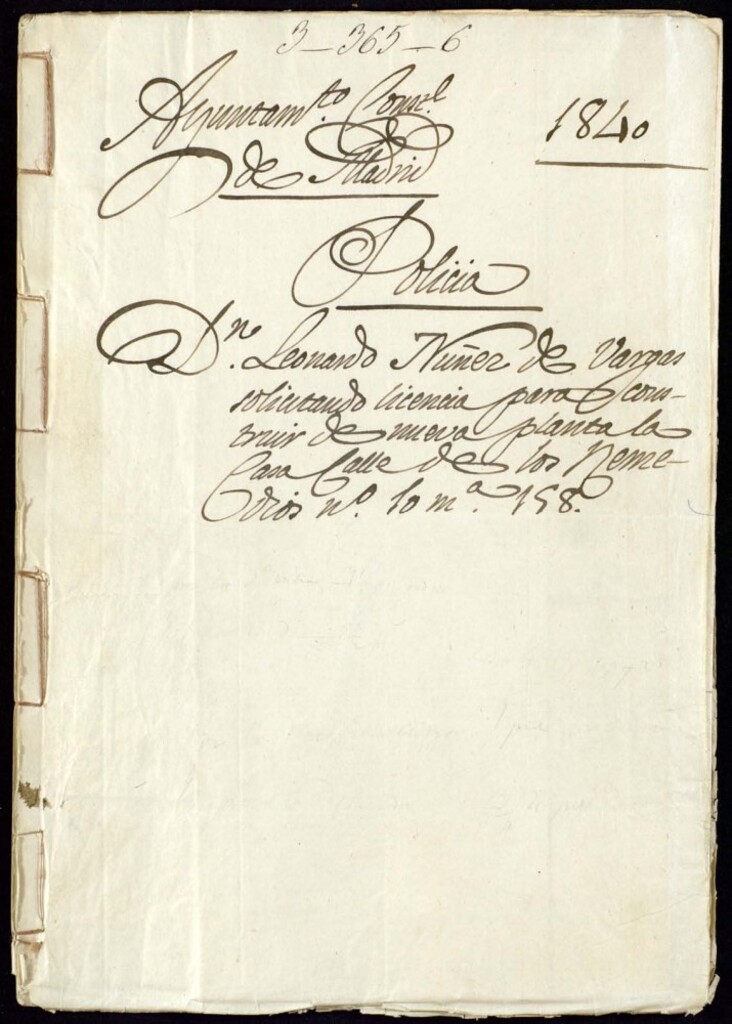 3-365-6
Ayuntam.to Const.l
de Madrid
1840
Policia
D.n Leonardo Nuñez de Vargas
solicitando licencia para cons-
truir de nueva planta la
Casa Calle de los Reme-
dios n.o 10 m.a 158.